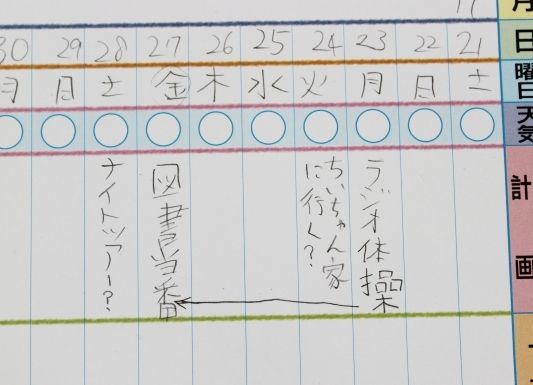 月
日
曜日
天気
計画
21
22
23
24
25
26
27
28
29
30
土
日
月
火
水
木
金
土
日
月
ラジオ体操
ちぃちゃん家
に行く?
図書当番
ナイトツアー?